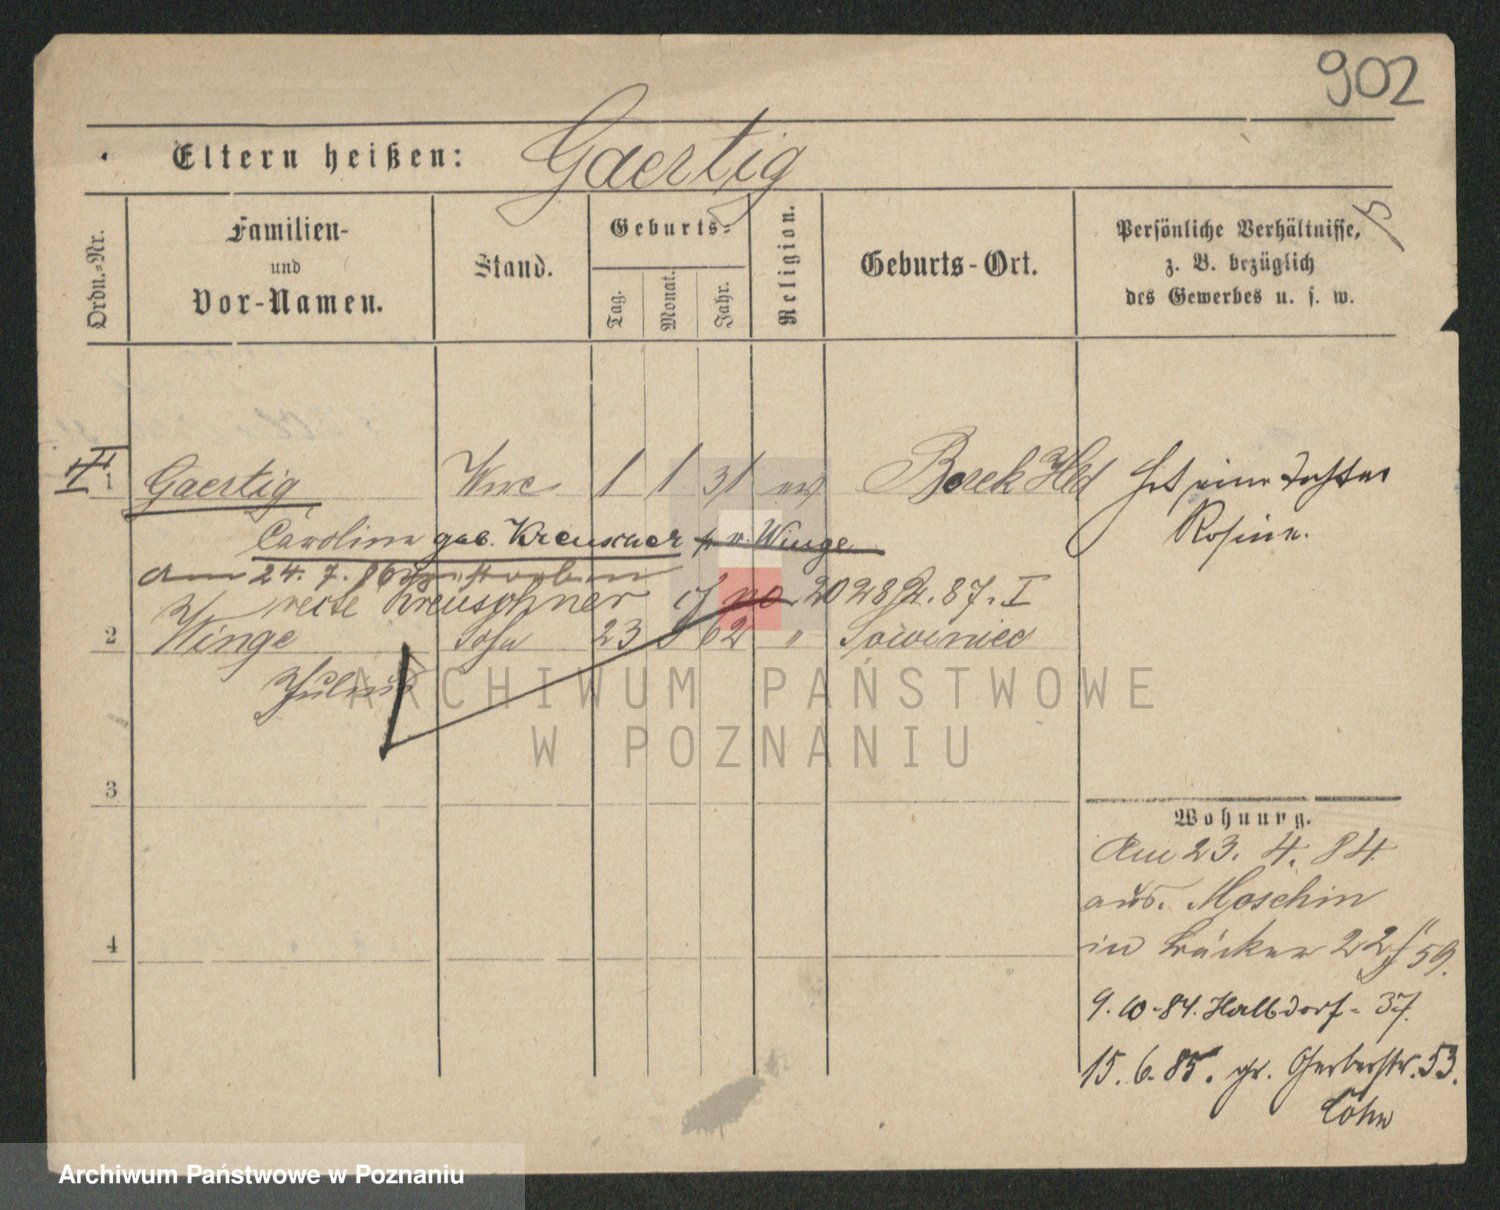 902
Eltern heißen: Gaertig
Ordn.-Nr.
Familien-
und
Vor-Namen.
Stand.
Geburts-
Tag.
Monat.
Jahr.
Religion.
Geburts-Ort.
Persönliche Verhältnisse,
z. B. bezüglich
des Gewerbes u. s. w.
1 Gaertig Wwe 1 1 31 ev Borek Hld Hat eine Tochter
Caroline geb. Kreuscher v. Winge Rosine.
am 24. 7. 86 gestorben
recte Kreuschner 2028/2. 87. I
2 Winge Sohn 23 62 " Sowiniec
Julius
ARCHIWUM PAŃSTWOWE
W POZNANIU
3
4
Wohnung.
Am 23. 4. 84
aus. Moschin
in Bäcker 22 59.
9. 10. 84. Halbdorf- 37.
15. 6. 85. gr. Gerberstr. 53.
Cohn
Archiwum Państwowe w Poznaniu